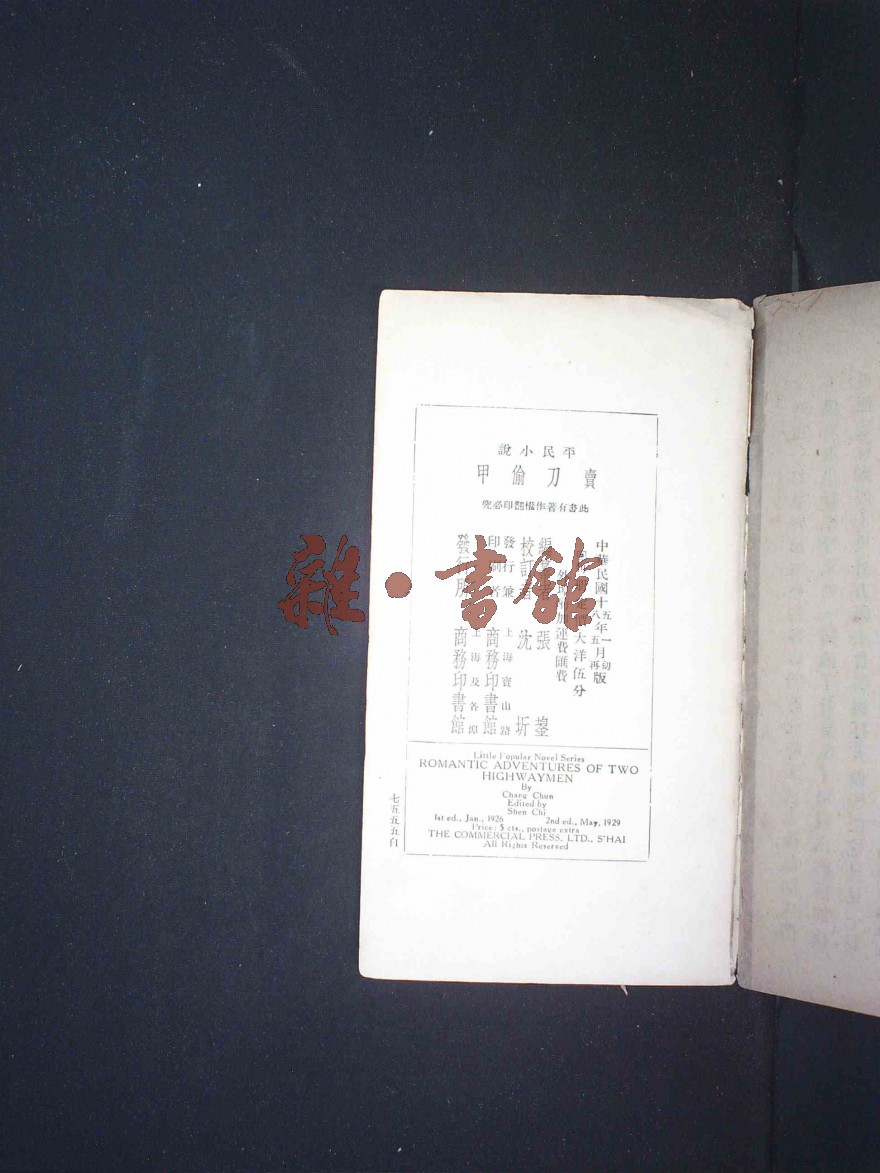 平民小說
賣刀偷甲
此書有著作權翻印必究
中華民國十五年一月初版
十八年五月再版
大洋伍分
加運費匯費
張鋆
校訂
沈圻
發行兼
印者
上海寶山路
商務印書館
發行所
上海及各埠
商務印書館
Little Popular Novel Series
ROMANTIC ADVENTURES OF TWO
HIGHWAYMEN
By
Chang Chun
Edited by
Shen Chi
1st ed., Jan., 1926 2nd ed., May, 1929
Price: 5 cts., postage extra
THE COMMERCIAL PRESS, LTD., S'HAI
All Rights Reserved
七五五五白
雜·書館